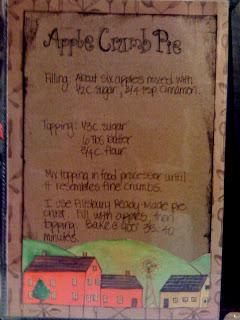 Apple Crumb Pie
Filling: About six apples mixed with
1/2 c sugar, 3/4 tsp cinnamon.
Topping: 1/3 c sugar
6 Tbs butter
3/4 c flour
Mix topping in food processor until
it resembles fine crumbs.
I use Pillsbury Ready-Made pie
crust. Fill with apples, then
topping. Bake @ 400° 35-40
minutes.